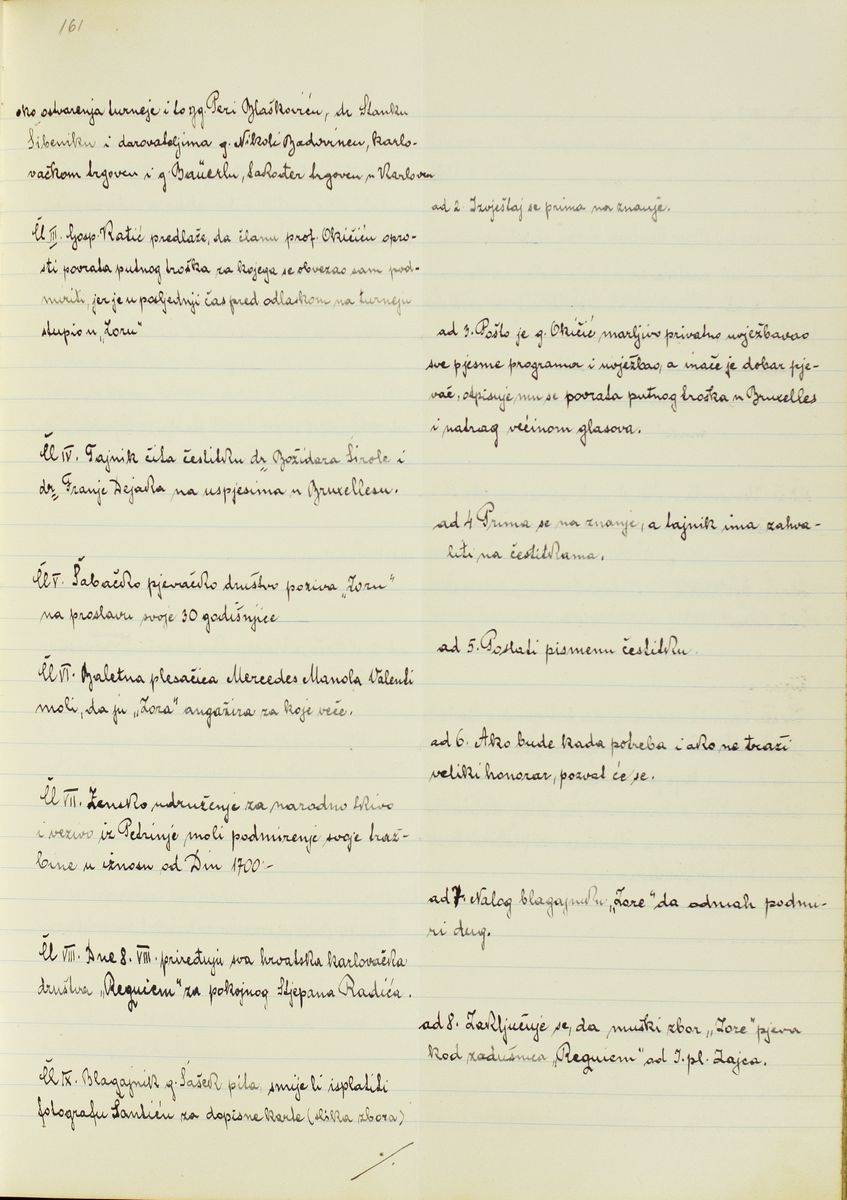 161
oko ostvarenja turneje i to gg. Peri Blaškoviću, dr Stanku
Šibeniku i darovateljima g. Nikoli Badovincu, karlo-
vačkom trgovcu i g. Bäuerlu, također trgovcu u Karlovcu
ad 2 Izvještaj se prima na znanje.
Čl III. Gosp. Ratić predlaže, da članu prof. Okičiću opro-
sti povrata putnog troška za kojega se obvezao sam pod-
miriti, jer je u posljednji čas pred odlaskom na turneju
stupio u „Zoru"
ad 3. Pošto je g. Okičić marljivo privatno uvježbavao
sve pjesme programa i uvježbao, a inače je dobar pje-
vač, otpisuje mu se povrata putnog troška u Bruxelles
i natrag većinom glasova.
Čl IV. Tajnik čita čestitku dr Božidara Širole i
dr Franje Dejaka na uspjesima u Bruxellesu.
ad 4 Prima se na znanje, a tajnik ima zahva-
liti na čestitkama.
Čl V. Šabačko pjevačko društvo poziva „Zoru"
na proslavu svoje 30 godišnjice
ad 5. Poslati pismenu čestitku
Čl VI. Baletna plesačica Mercedes Manola Valenti
moli, da ju „Zora" angažira za koje veče.
ad 6. Ako bude kada potreba i ako ne traži
veliki honorar, pozvat će se.
Čl VII. Žensko udruženje za narodno tkivo
i vezivo iz Petrinje moli podmirenje svoje traž-
bine u iznosu od Din 1700.-
ad 7. Nalog blagajniku „Zore" da odmah podmi-
ri dug.
Čl VIII. Dne 8. VIII. priređuju sva hrvatska karlovačka
društva „Requiem" za pokojnog Stjepana Radića.
ad 8. Zaključuje se, da muški zbor „Zore" pjeva
kod zadušnica „Requiem" od I. pl. Zajca.
Čl IX. Blagajnik g. Šašek pita, smije li isplatiti
fotografu Santiću za dopisne karte (slika zbora)
./.